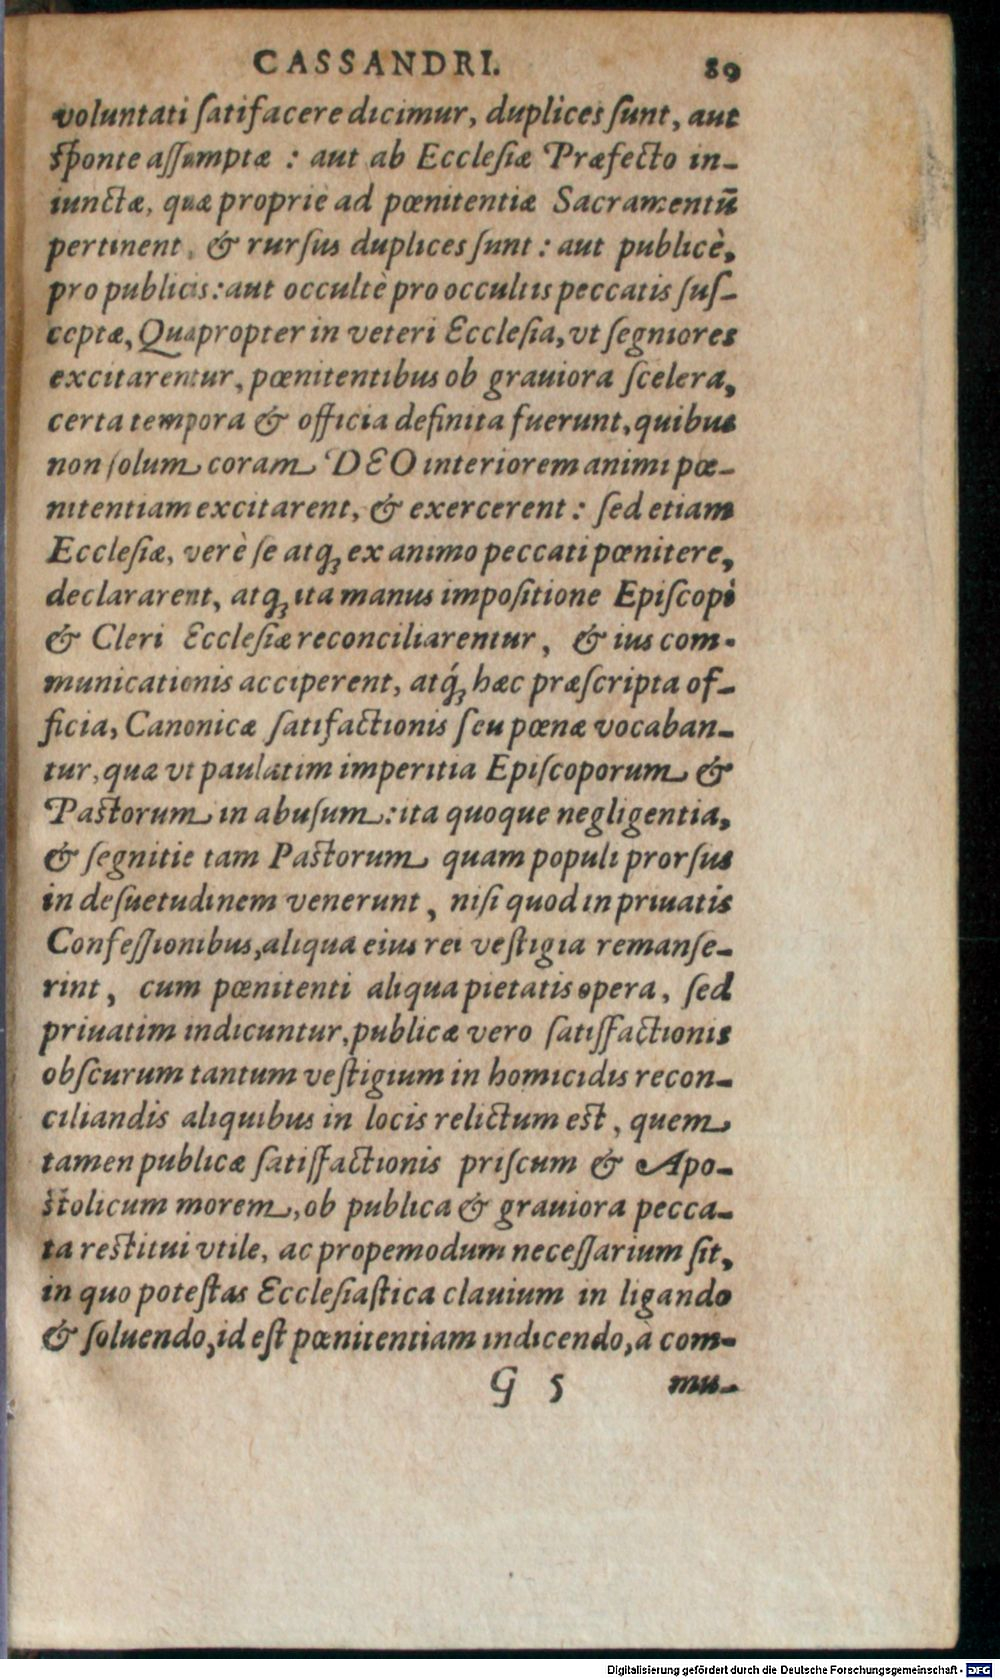 CASSANDRI. 89
voluntati ſatiſfacere dicimur, duplices ſunt, aut
ſponte aſſumptæ : aut ab Eccleſiæ Præfecto in-
iunctæ, quæ propriè ad pœnitentiæ Sacramentū
pertinent, & rurſus duplices ſunt : aut publicè,
pro publicis: aut occultè pro occultis peccatis ſuſ-
ceptæ, Quapropter in veteri Eccleſia, vt ſegniores
excitarentur, pœnitentibus ob grauiora ſcelera,
certa tempora & officia definita fuerunt, quibus
non ſolum coram DEO interiorem animi pœ-
nitentiam excitarent, & exercerent : ſed etiam
Eccleſiæ, verè ſe atq; ex animo peccati pœnitere,
declararent, atq; ita manus impoſitione Epiſcopi
& Cleri Eccleſiæ reconciliarentur, & ius com-
municationis acciperent, atq́; hæc præſcripta of-
ficia, Canonicæ ſatiſfactionis ſeu pœnæ vocaban-
tur, quæ vt paulatim imperitia Epiſcoporum &
Paſtorum in abuſum: ita quoque negligentia,
& ſegnitie tam Paſtorum quam populi prorſus
in deſuetudinem venerunt, niſi quod in priuatis
Confeſſionibus, aliqua eius rei veſtigia remanſe-
rint, cum pœnitenti aliqua pietatis opera, ſed
priuatim indicuntur, publicæ vero ſatiſfactionis
obſcurum tantum veſtigium in homicidis recon-
ciliandis aliquibus in locis relictum eſt, quem
tamen publicæ ſatiſfactionis priſcum & Apo-
ſtolicum morem, ob publica & grauiora pecca-
ta reſtitui vtile, ac propemodum neceſſarium ſit,
in quo poteſtas Eccleſiaſtica clauium in ligando
& ſoluendo, id eſt pœnitentiam indicendo, à com-
G 5 mu-
Digitalisierung gefördert durch die Deutsche Forschungsgemeinschaft - DFG